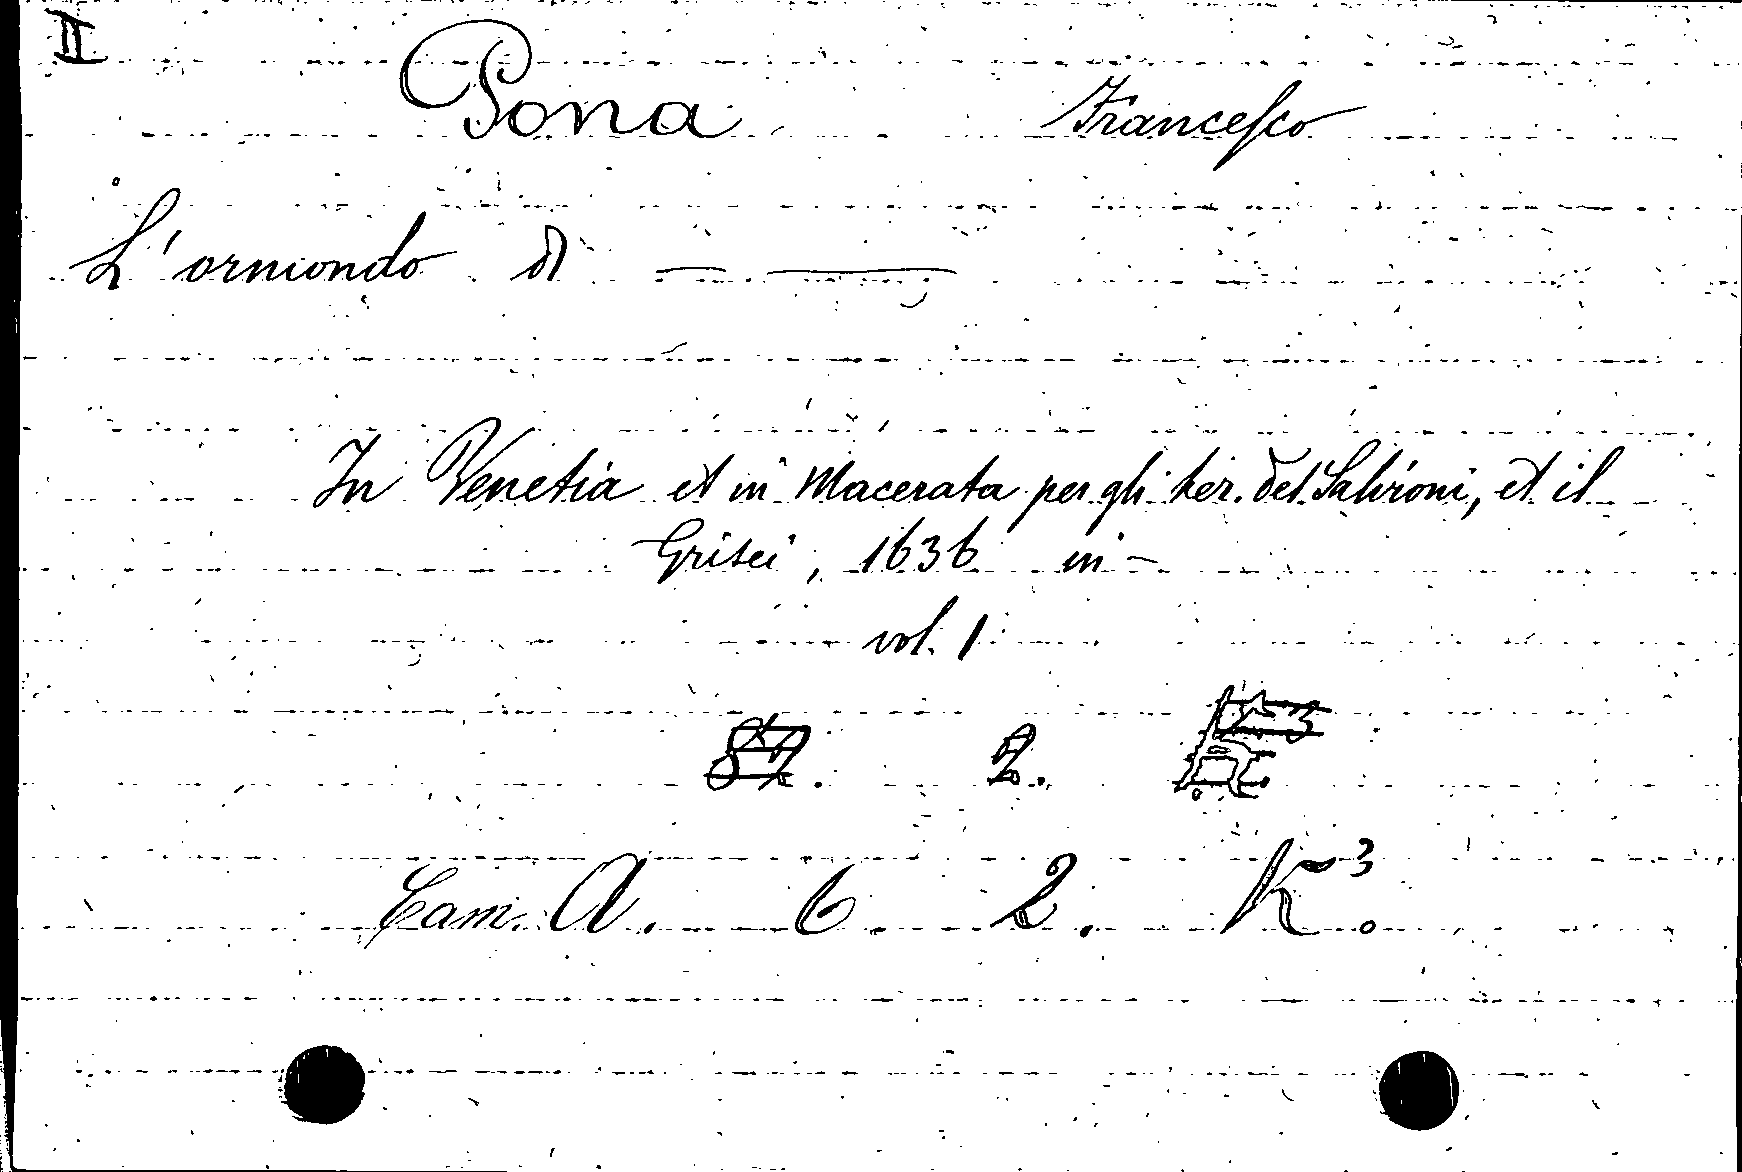 II
Pona Francesco
L'ormondo di — —
In Venetia et in Macerata per gli her. del Salvioni, et il
Grisei, 1636 in-
vol. 1
87. 2.
Cam. A. 6. 2. K³.